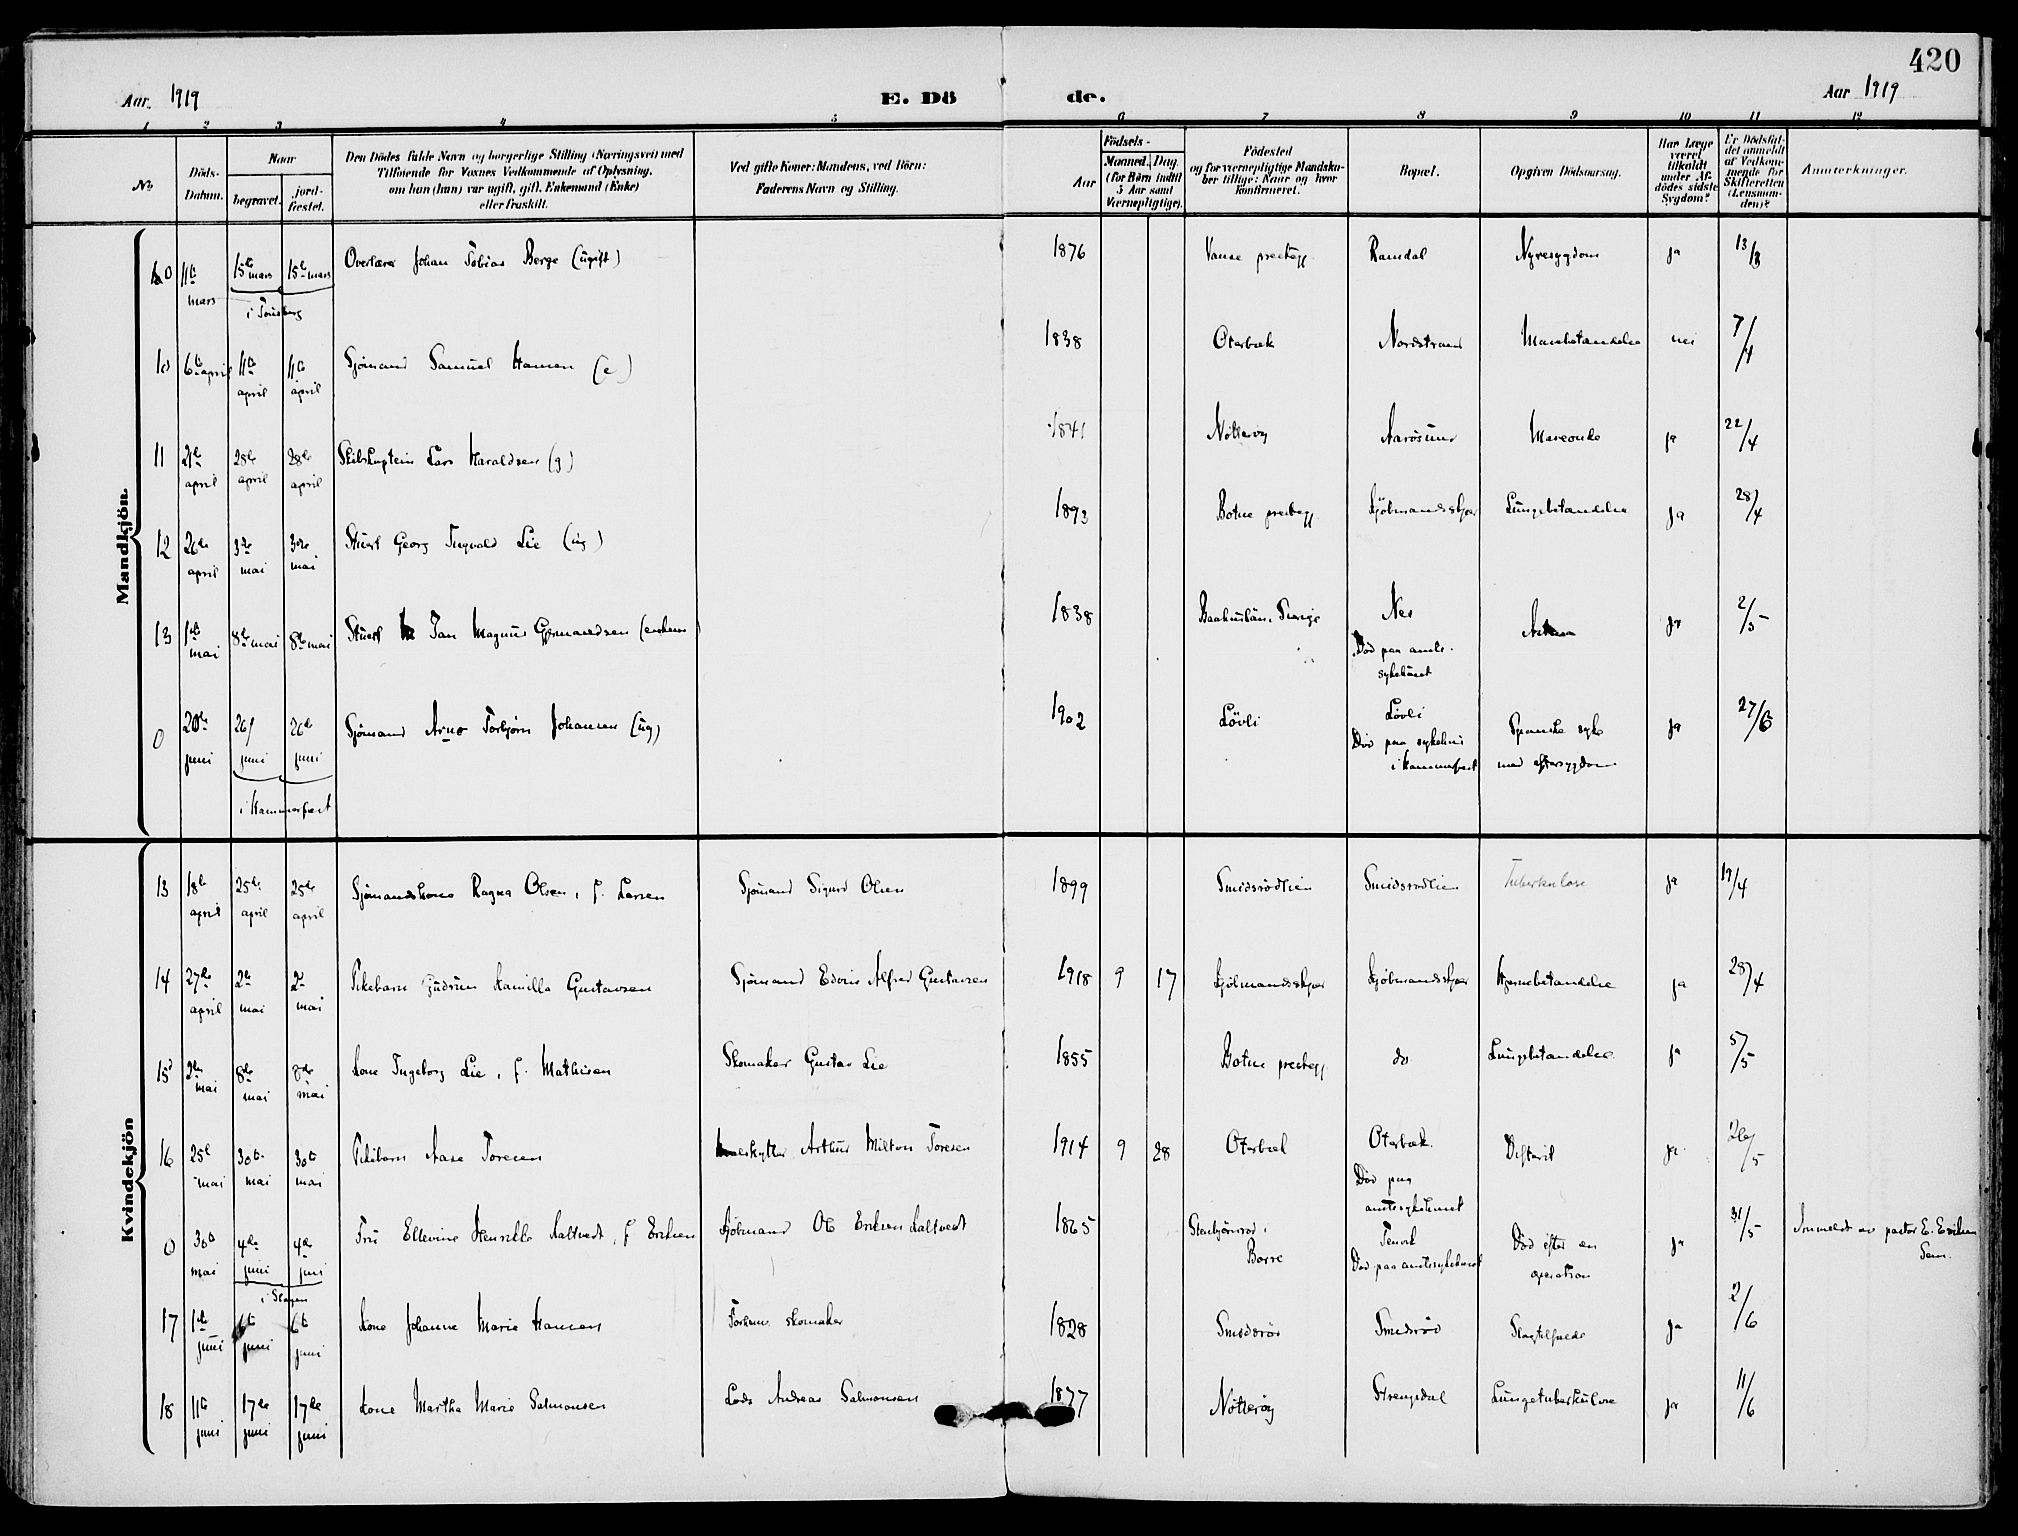 420
Aar 1919 E. Dö de. Aar 1919
1 2 3 4 5 6 7 8 9 10 11 12
No
Döds-Datum.
Naar
begravet.
jord-fæstet.
Den Dödes fulde Navn og borgerlige Stilling (Næringsvei) med
Tilföiende for Voxnes Vedkommende af Oplysning,
om han (hun) var ugift, gift, Enkemand (Enke)
eller fraskilt.
Ved gifte Koner: Mandens, ved Börn:
Faderens Navn og Stilling.
Födsels-
Aar
Maaned. Dag.
(for Börn indtil
5 Aar samt
Værnepligtige).
Födested
og for værnepligtige Mandska-
ber tillige: Naar og hvor
konfirmeret.
Bopæl.
Opgiven Dödsaarsag.
Har Læge
været
tilkaldt
under Af-
dödes sidste
Sygdom?
Er Dödsfal-
det anmeldt
af Vedkom-
mende for
Skifteretten
(Lensman-
den)?
Anmerkninger.
Mandkjön.
0 11te mars 15de mars 15de mars Overlærer Johan Tobias Berge (ugift) 1876 Vanse prestegj. Ramdal Nyresygdom ja 13/3
i Tønsberg
10 6te april 11te april 11te april Sjømand Samuel Hansen (e) 1838 Oterbæk Nordstrand Mavebetændelse nei 7/4
11 21de april 28de april 28de april Skibskaptein Lars Haraldsen (g) 1841 Nøtterøy Aarøsund Maveonde ja 22/4
12 26de april 3die mai 3die mai Stuert Georg Ingvald Lie (ug) 1893 Botne prestegj. Kjøbmandsskjær Lungebetændelse ja 28/4
13 1ste mai 8de mai 8de mai Stuert Jan Magnus Gjermundsen (enkem) 1838 Baahuslän, Sverige Nes Død paa amts-sykehuset ja 2/5
0 20de juni 26/ juni 26de juni Sjømand Arno Torbjørn Johansen (ug) 1902 Løvli Løvli Død paa sykehus i Hammerfest Spanske syke med eftersygdom ja 27/6
i Hammerfest
Kvindekjön
13 18de april 25de april 25de april Sjømandskone Ragna Olsen, f. Larsen Sjømand Sigurd Olsen 1899 Smidsrødlien Smidsrødlien Tuberkulose ja 19/4
14 27de april 2de mai 2 mai Pikebarn Gudrun Kamilla Gustavsen Sjømand Edvin Alfred Gustavsen 1918 9 17 Kjøbmandsskjær Kjøbmandsskjær Hjernebetændelse ja 28/4
15 2den mai 8de mai 8de mai Kone Ingeborg Lie, f. Mathisen Skomaker Gustav Lie 1855 Botne prestegj. do Lungebetændelse ja 5/5
16 25de mai 30te mai 30te mai Pikebarn Aase Toresen Arthur Milton Toresen 1914 9 28 Oterbæk Oterbæk. Død paa amtssykehuset Difterit ja 26/5
0 30te mai 4de juni 4de juni Fru Ellevine Henrikke Kaltvedt, f. Eriksen Kjøbmand Ole Eriksen Kaltvedt 1865 Stenbjørnrød i Borre Tenvik Død paa amtssykehuset Død efter en operation ja 31/5 Anmeldt av pastor E. Eriksen Sem.
i Slagen
17 1ste juni 6te juni 6te juni Kone Johanne Marie Hansen skomaker 1828 Smidsrød Smidsrød Slagtilfælde ja 2/6
18 11te juni 17de juni 17de juni Kone Martha Marie Salmonsen Lods Andreas Salmonsen 1877 Nøtterøy Strengsdal Lungetuberkulose ja 11/6